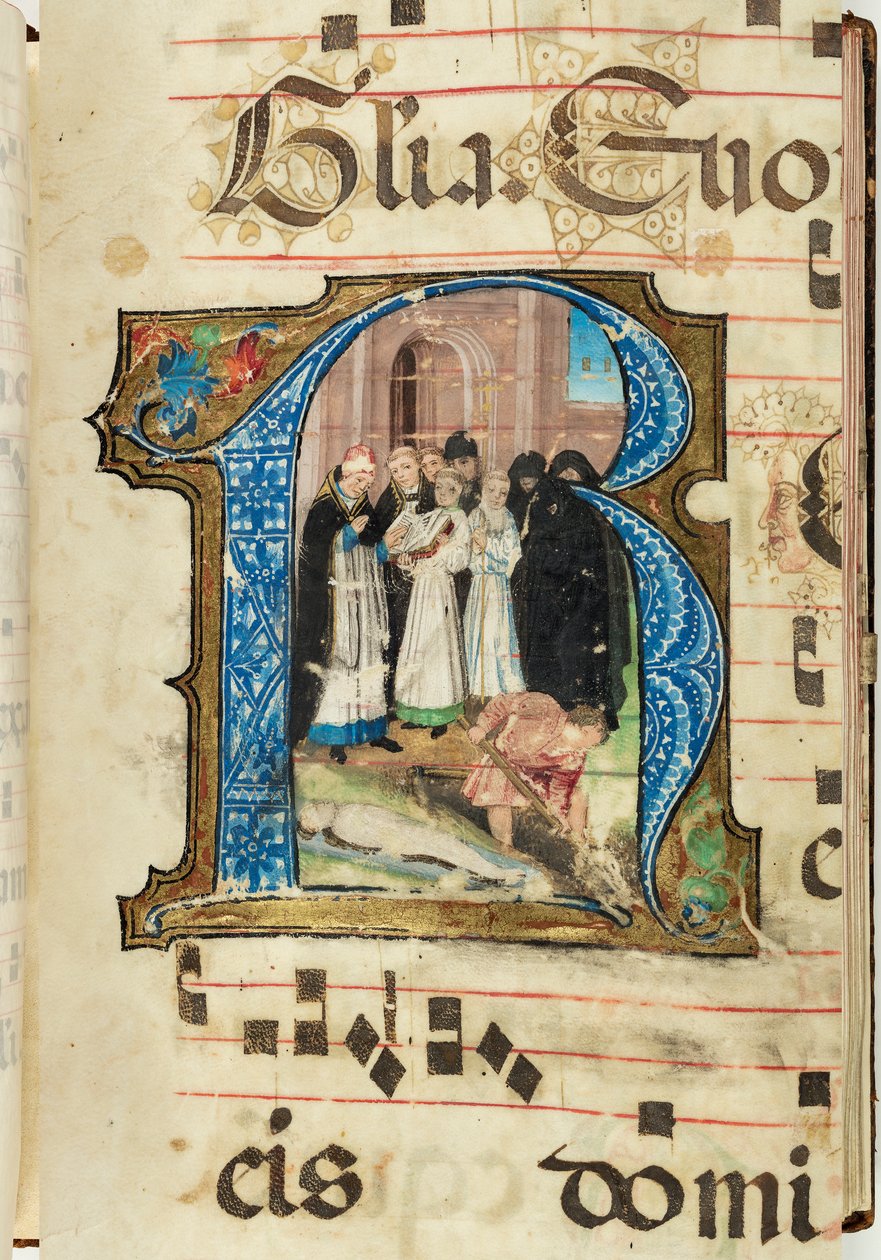 Gl'ia. Euo
R
e
cis domi